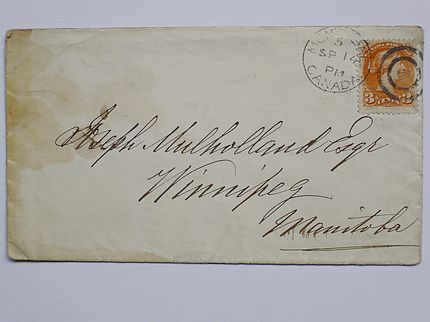 SP 1
PM
CANADA
3 3
Joseph Mulholland Esqr
Winnipeg
Manitoba